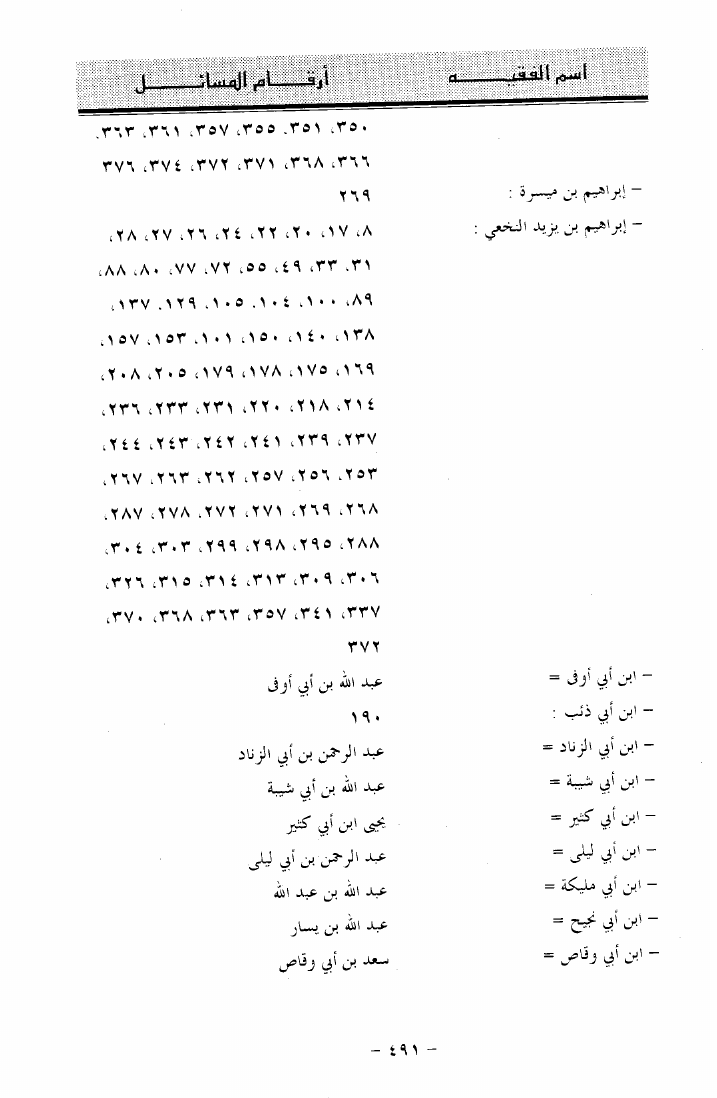 اسم الفقيه أرقام المسائل
٣٥٠، ٣٥١، ٣٥٥، ٣٥٧، ٣٦١، ٣٦٣،
٣٦٦، ٣٦٨، ٣٧١، ٣٧٢، ٣٧٤، ٣٧٦
– إبراهيم بن ميسرة : ٢٦٩
– إبراهيم بن يزيد النخعي : ٨، ١٧، ٢٠، ٢٢، ٢٤، ٢٦، ٢٧، ٢٨،
٣١، ٣٣، ٤٩، ٥٥، ٧٢، ٧٧، ٨٠، ٨٨،
٨٩، ١٠٠، ١٠٤، ١٠٥، ١٢٩، ١٣٧،
١٣٨، ١٤٠، ١٥٠، ١٠١، ١٥٣، ١٥٧،
١٦٩، ١٧٥، ١٧٨، ١٧٩، ٢٠٥، ٢٠٨،
٢١٤، ٢١٨، ٢٢٠، ٢٣١، ٢٣٣، ٢٣٦،
٢٣٧، ٢٣٩، ٢٤١، ٢٤٢، ٢٤٣، ٢٤٤،
٢٥٣، ٢٥٦، ٢٥٧، ٢٦٢، ٢٦٣، ٢٦٧،
٢٦٨، ٢٦٩، ٢٧١، ٢٧٢، ٢٧٨، ٢٨٧،
٢٨٨، ٢٩٥، ٢٩٨، ٢٩٩، ٣٠٣، ٣٠٤،
٣٠٦، ٣٠٩، ٣١٣، ٣١٤، ٣١٥، ٣٢٦،
٣٣٧، ٣٤١، ٣٥٧، ٣٦٣، ٣٦٨، ٣٧٠،
٣٧٢
– ابن أبي أوفى = عبد الله بن أبي أوفى
– ابن أبي ذئب : ١٩٠
– ابن أبي الزناد = عبد الرحمن بن أبي الزناد
– ابن أبي شيبة = عبد الله بن أبي شيبة
– ابن أبي كثير = يحيى ابن أبي كثير
– ابن أبي ليلى = عبد الرحمن بن أبي ليلى
– ابن أبي مليكة = عبد الله بن عبد الله
– ابن أبي نجيح = عبد الله بن يسار
– ابن أبي وقاص = سعد بن أبي وقاص
– ٤٩١ –